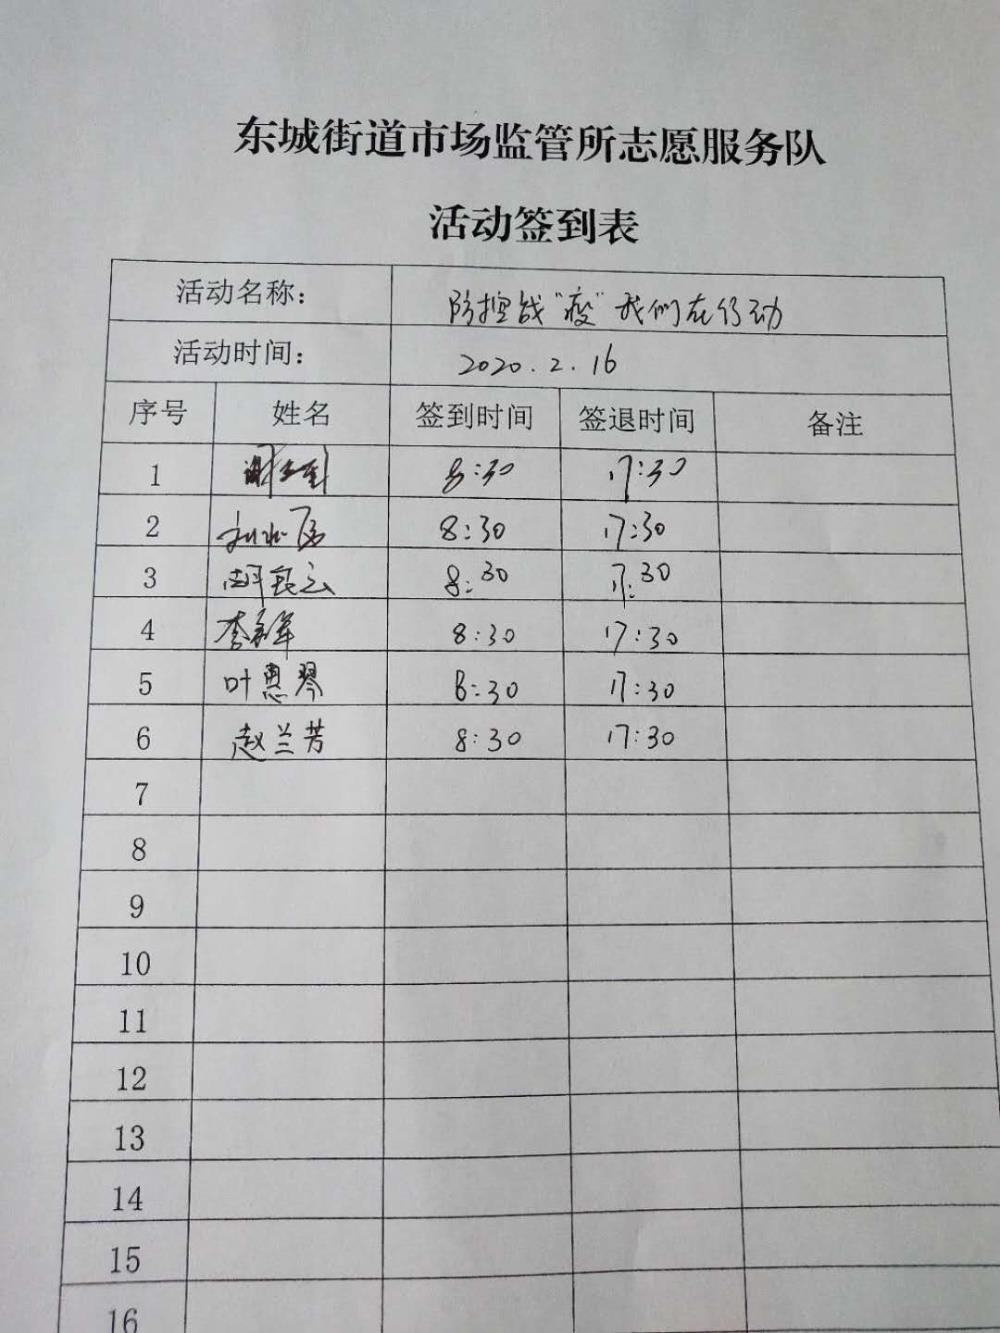 东城街道市场监管所志愿服务队
活动签到表
活动名称： 防控战"疫"我们在行动
活动时间： 2020.2.16
序号 姓名 签到时间 签退时间 备注
1 谢 8:30 17:30
2 8:30 17:30
3 胡银云 8:30 17:30
4 李 8:30 17:30
5 叶惠琴 8:30 17:30
6 赵兰芳 8:30 17:30
7
8
9
10
11
12
13
14
15
16